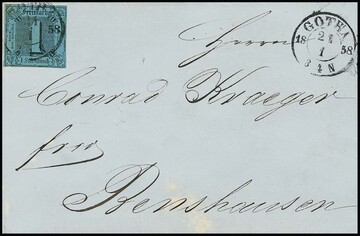 1
58
GOTHA
21
18 58
1
3 4 N
Herrn
Conrad Kraeger
frei
Benshausen